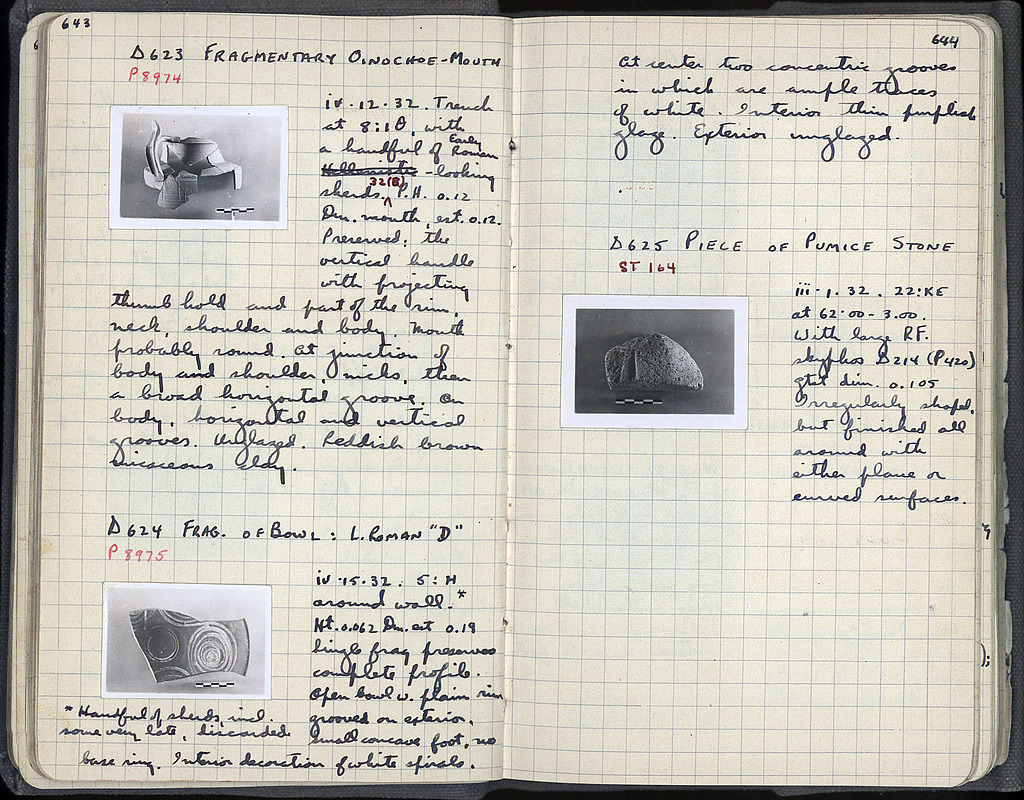 643
D623 FRAGMENTARY OINOCHOE-MOUTH
P 8974
iv·12·32. Trench
at 8:1Θ, with
a handful of Early Roman
Hellenistic -looking
sherds. 32(B) P.H. 0.12
Dm. mouth, est. 0.12.
Preserved: the
vertical handle
with projecting
thumb hold and part of the rim,
neck, shoulder and body. Mouth
probably round. At junction of
body and shoulder, nicks, then
a broad horizontal groove. On
body, horizontal and vertical
grooves. Unglazed. Reddish brown
micaceous clay.
D624 FRAG. OF BOWL: L. ROMAN "D"
P 8975
iv·15·32. 5:H
around wall.*
Ht. 0.062 Dm. est 0.19
Single frag preserves
complete profile.
Open bowl w. plain rim
grooved on exterior.
Small concave foot, no
base ring. Interior decoration of white spirals.
* Handful of sherds, incl.
some very late, discarded
644
At center two concentric grooves
in which are ample traces
of white. Interior thin purplish
glaze. Exterior unglazed.
D625 PIECE OF PUMICE STONE
ST 164
iii·1·32. 22:KE
at 62.00-3.00.
With large RF.
skyphos D214 (P420)
gtst dim. 0.105
Irregularly shaped,
but finished all
around with
either plane or
curved surfaces.